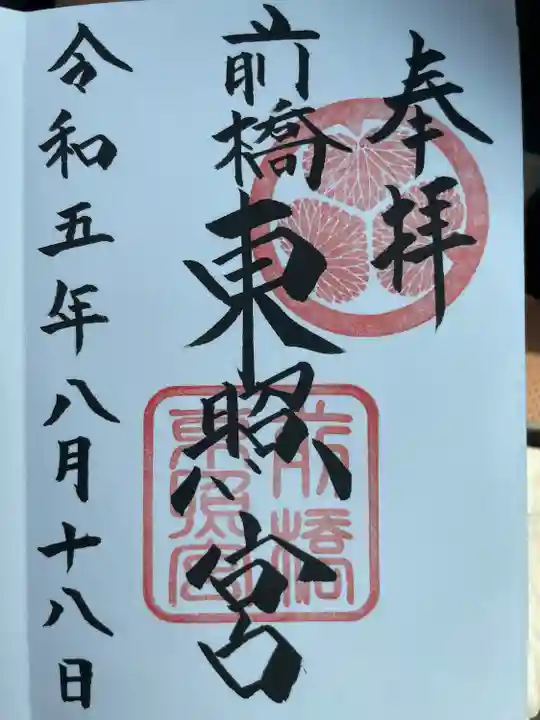 奉拝
前橋東照宮
前橋
東照宮
令和五年八月十八日